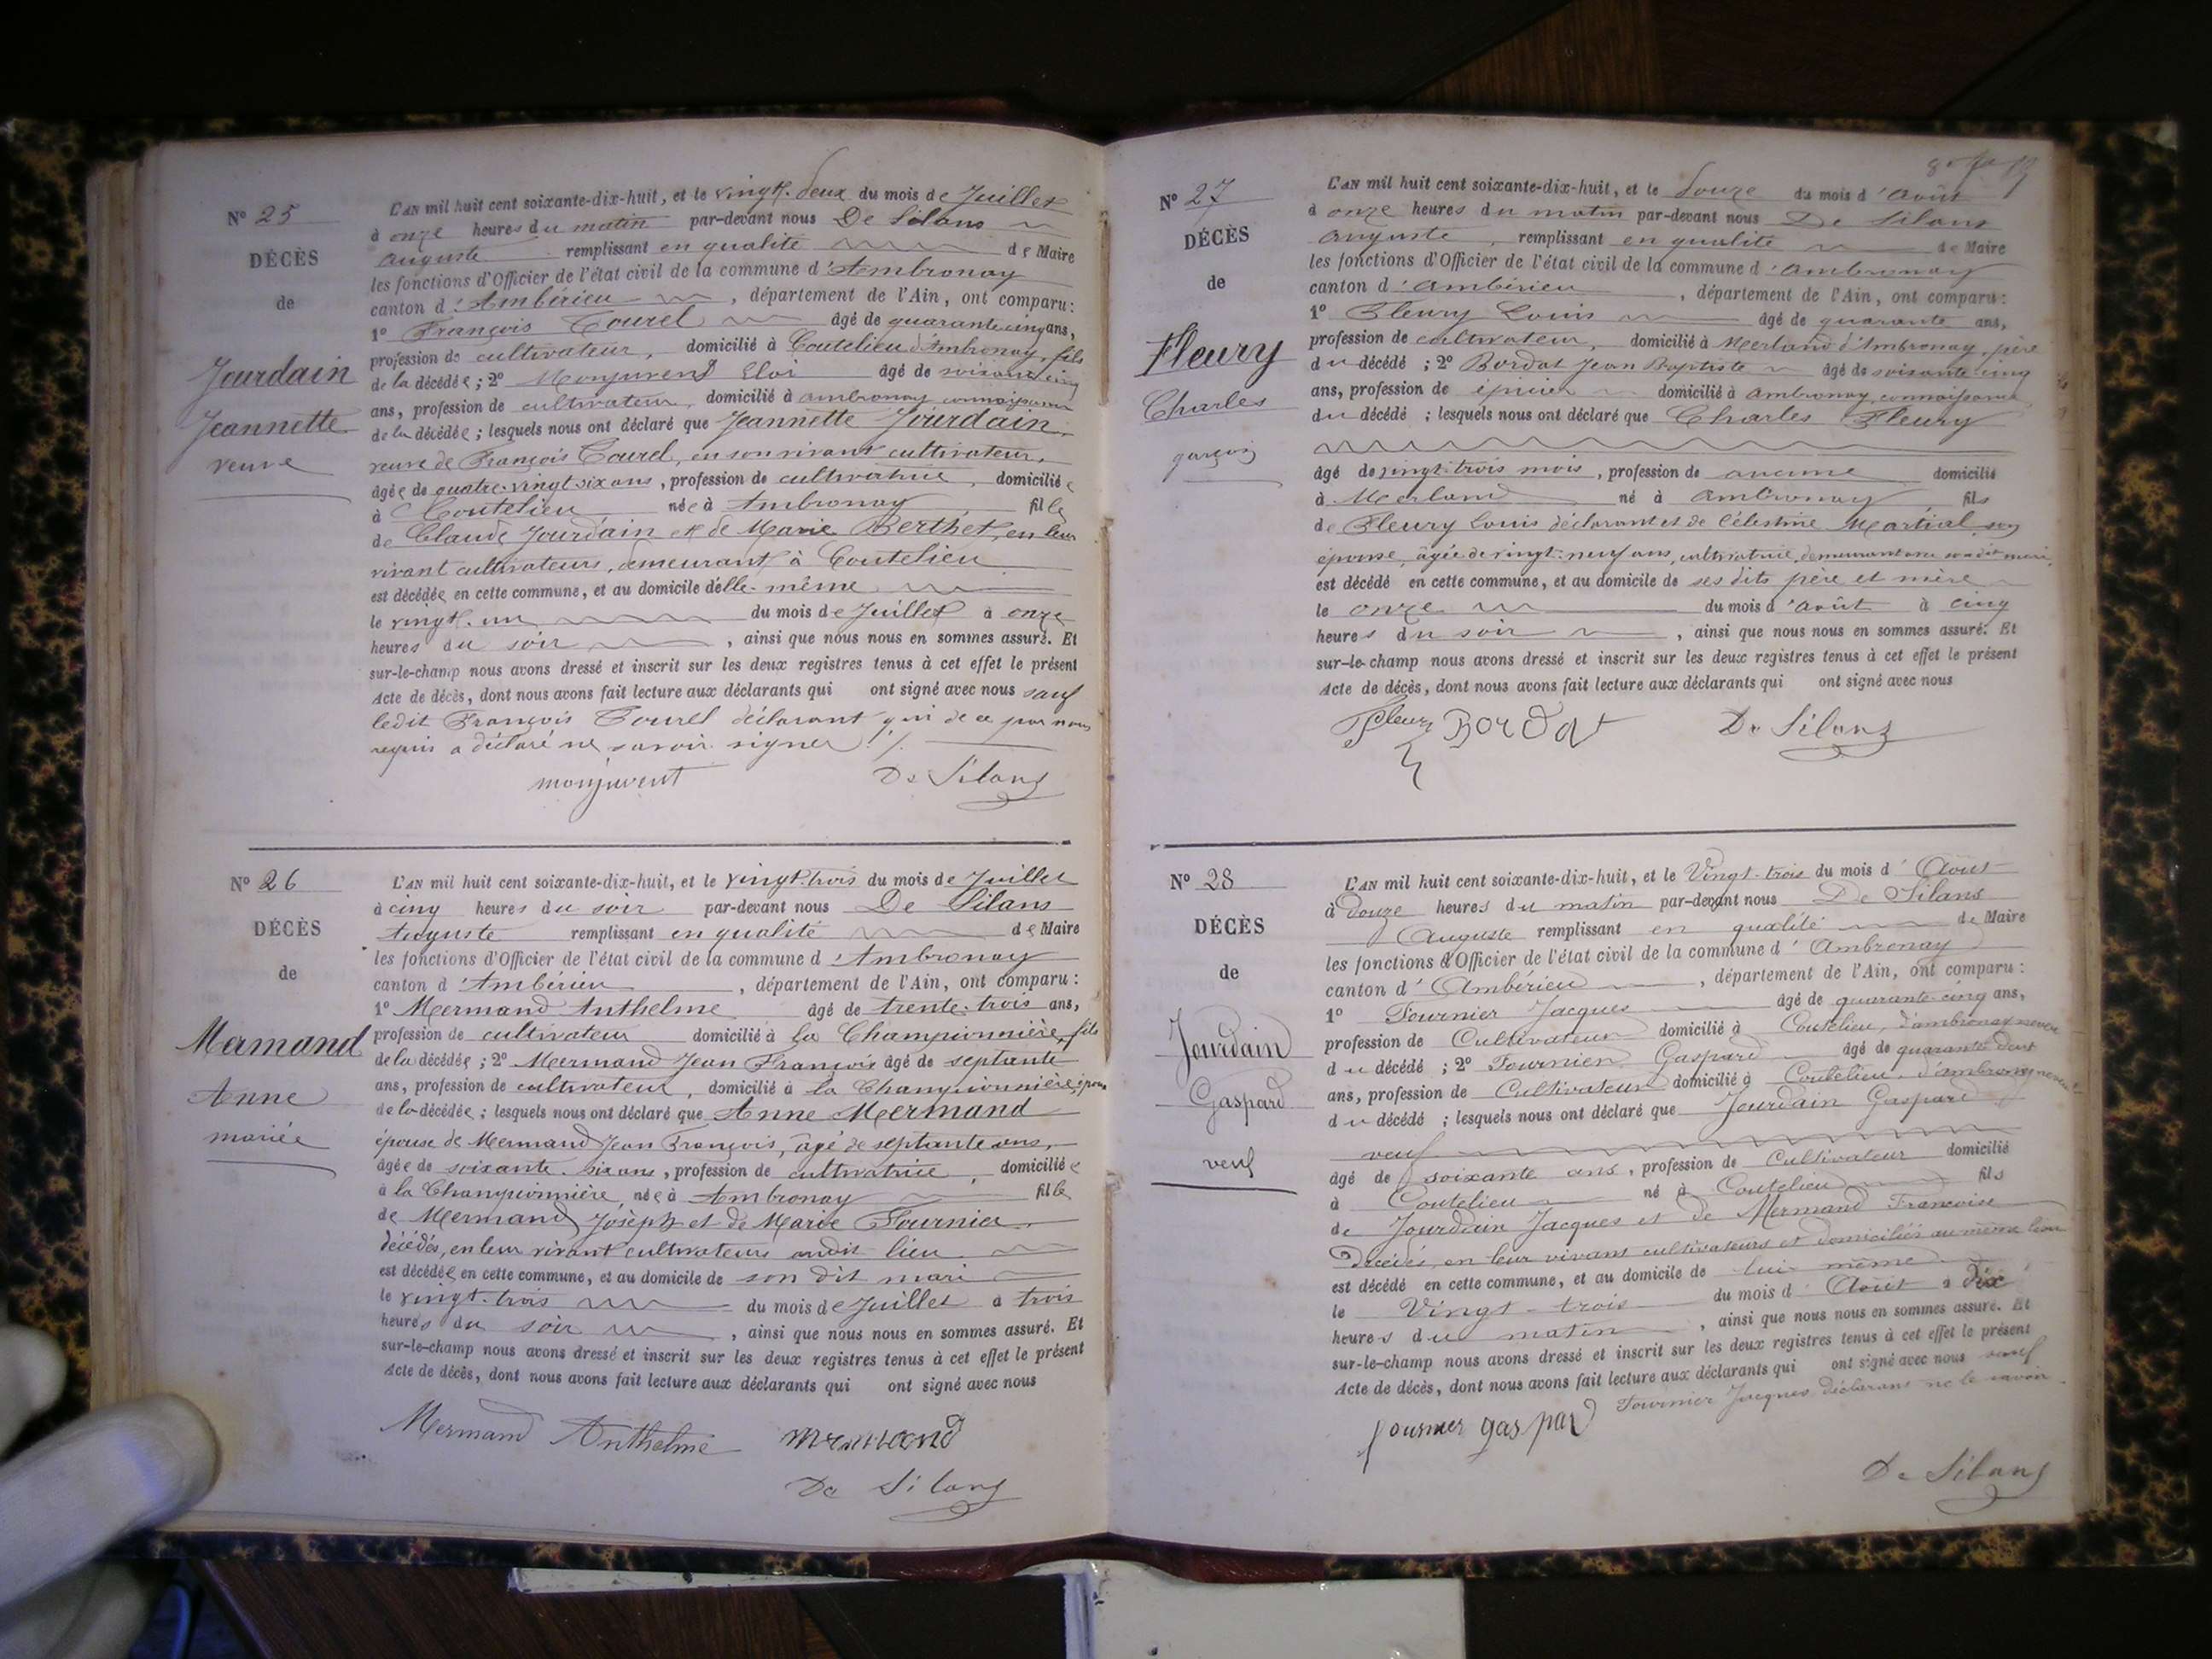 N° 25
DÉCÈS
de
Jourdain
Jeannette
veuve
L'AN mil huit cent soixante-dix-huit, et le vingt-deux du mois de Juillet
à onze heures du matin par-devant nous De Silans
Auguste remplissant en qualité de Maire
les fonctions d'Officier de l'état civil de la commune d'Ambronay
canton d'Ambérieu, département de l'Ain, ont comparu:
1° François Tourel âgé de quarante cinq ans,
profession de cultivateur, domicilié à Coutelieu d'Ambronay, fils
de la décédée; 2° Monjuvent Eloi âgé de soixante cinq
ans, profession de cultivateur, domicilié à ambronay connaissance
de la décédée; lesquels nous ont déclaré que Jeannette Jourdain,
veuve de François Tourel, en son vivant cultivateur,
âgée de quatre-vingt six ans, profession de cultivatrice, domiciliée
à Coutelieu née à Ambronay fille
de Claude Jourdain et de Marie Berthet, en leur
vivant cultivateurs, demeurant à Coutelieu
est décédée en cette commune, et au domicile d'elle-même
le vingt-un du mois de Juillet à onze
heures du soir, ainsi que nous nous en sommes assuré. Et
sur-le-champ nous avons dressé et inscrit sur les deux registres tenus à cet effet le présent
Acte de décès, dont nous avons fait lecture aux déclarants qui ont signé avec nous sauf
ledit François Tourel déclarant qui de ce par nous
requis a déclaré ne savoir signer ./.
monjuvent De Silans
N° 26
DÉCÈS
de
Mermand
Anne
mariée
L'AN mil huit cent soixante-dix-huit, et le vingt-trois du mois de Juillet
à cinq heures du soir par-devant nous De Silans
Auguste remplissant en qualité de Maire
les fonctions d'Officier de l'état civil de la commune d'Ambronay
canton d'Ambérieu, département de l'Ain, ont comparu:
1° Mermand Anthelme âgé de trente-trois ans,
profession de cultivateur domicilié à la Championnière, fils
de la décédée; 2° Mermand Jean François âgé de septante
ans, profession de cultivateur, domicilié à la Championnière, époux
de la décédée; lesquels nous ont déclaré que Anne Mermand
épouse de Mermand Jean François, âgé de septante ans,
âgée de soixante-six ans, profession de cultivatrice, domiciliée
à la Championnière, née à Ambronay fille
de Mermand Joseph et de Marie Fournier
décédés, en leur vivant cultivateurs audit lieu
est décédée en cette commune, et au domicile de son dit mari
le vingt-trois du mois de Juillet à trois
heures du soir, ainsi que nous nous en sommes assuré. Et
sur-le-champ nous avons dressé et inscrit sur les deux registres tenus à cet effet le présent
Acte de décès, dont nous avons fait lecture aux déclarants qui ont signé avec nous
Mermand Anthelme mermand
De Silans
N° 27
DÉCÈS
de
Fleury
Charles
garçon
L'AN mil huit cent soixante-dix-huit, et le douze du mois d'août
à onze heures du matin par-devant nous De Silans
Auguste, remplissant en qualité de Maire
les fonctions d'Officier de l'état civil de la commune d'ambronay
canton d'ambérieu, département de l'Ain, ont comparu:
1° Fleury Louis âgé de quarante ans,
profession de cultivateur, domicilié à Merland d'Ambronay, père
du décédé; 2° Bordat Jean Baptiste âgé de soixante cinq
ans, profession de épicier domicilié à ambronay, connaissance
du décédé; lesquels nous ont déclaré que Charles Fleury
âgé de vingt-trois mois, profession de aucune domicilié
à Merland né à ambronay fils
de Fleury Louis déclarant et de Célestine Martial son
épouse, âgée de vingt-neuf ans, cultivatrice, demeurant avec son dit mari,
est décédé en cette commune, et au domicile de ses dits père et mère
le onze du mois d'août à cinq
heures du soir, ainsi que nous nous en sommes assuré. Et
sur-le-champ nous avons dressé et inscrit sur les deux registres tenus à cet effet le présent
Acte de décès, dont nous avons fait lecture aux déclarants qui ont signé avec nous
Fleury Bordat De Silans
N° 28
DÉCÈS
de
Jourdain
Gaspard
veuf
L'AN mil huit cent soixante-dix-huit, et le Vingt-trois du mois d'Aout
à douze heures du matin par-devant nous De Silans
Auguste remplissant en qualité de Maire
les fonctions d'Officier de l'état civil de la commune d'Ambronay
canton d'Ambérieu, département de l'Ain, ont comparu:
1° Fournier Jacques âgé de quarante-cinq ans,
profession de Cultivateur domicilié à Coutelieu, d'ambronay neveu
du décédé; 2° Fournier Gaspard âgé de quarante deux
ans, profession de Cultivateur domicilié à Coutelieu, d'ambronay neveu
du décédé; lesquels nous ont déclaré que Jourdain Gaspard
veuf
âgé de soixante ans, profession de Cultivateur domicilié
à Coutelieu né à Coutelieu fils
de Jourdain Jacques et de Mermand Francoise
Décédés, en leur vivant cultivateurs et domiciliés au même lieu
est décédé en cette commune, et au domicile de lui même
le Vingt-trois du mois d'Aout à dix
heures du matin, ainsi que nous nous en sommes assuré. Et
sur-le-champ nous avons dressé et inscrit sur les deux registres tenus à cet effet le présent
Acte de décès, dont nous avons fait lecture aux déclarants qui ont signé avec nous sauf
Fournier Jacques déclarant ne le savoir.
fournier gaspard
De Silans